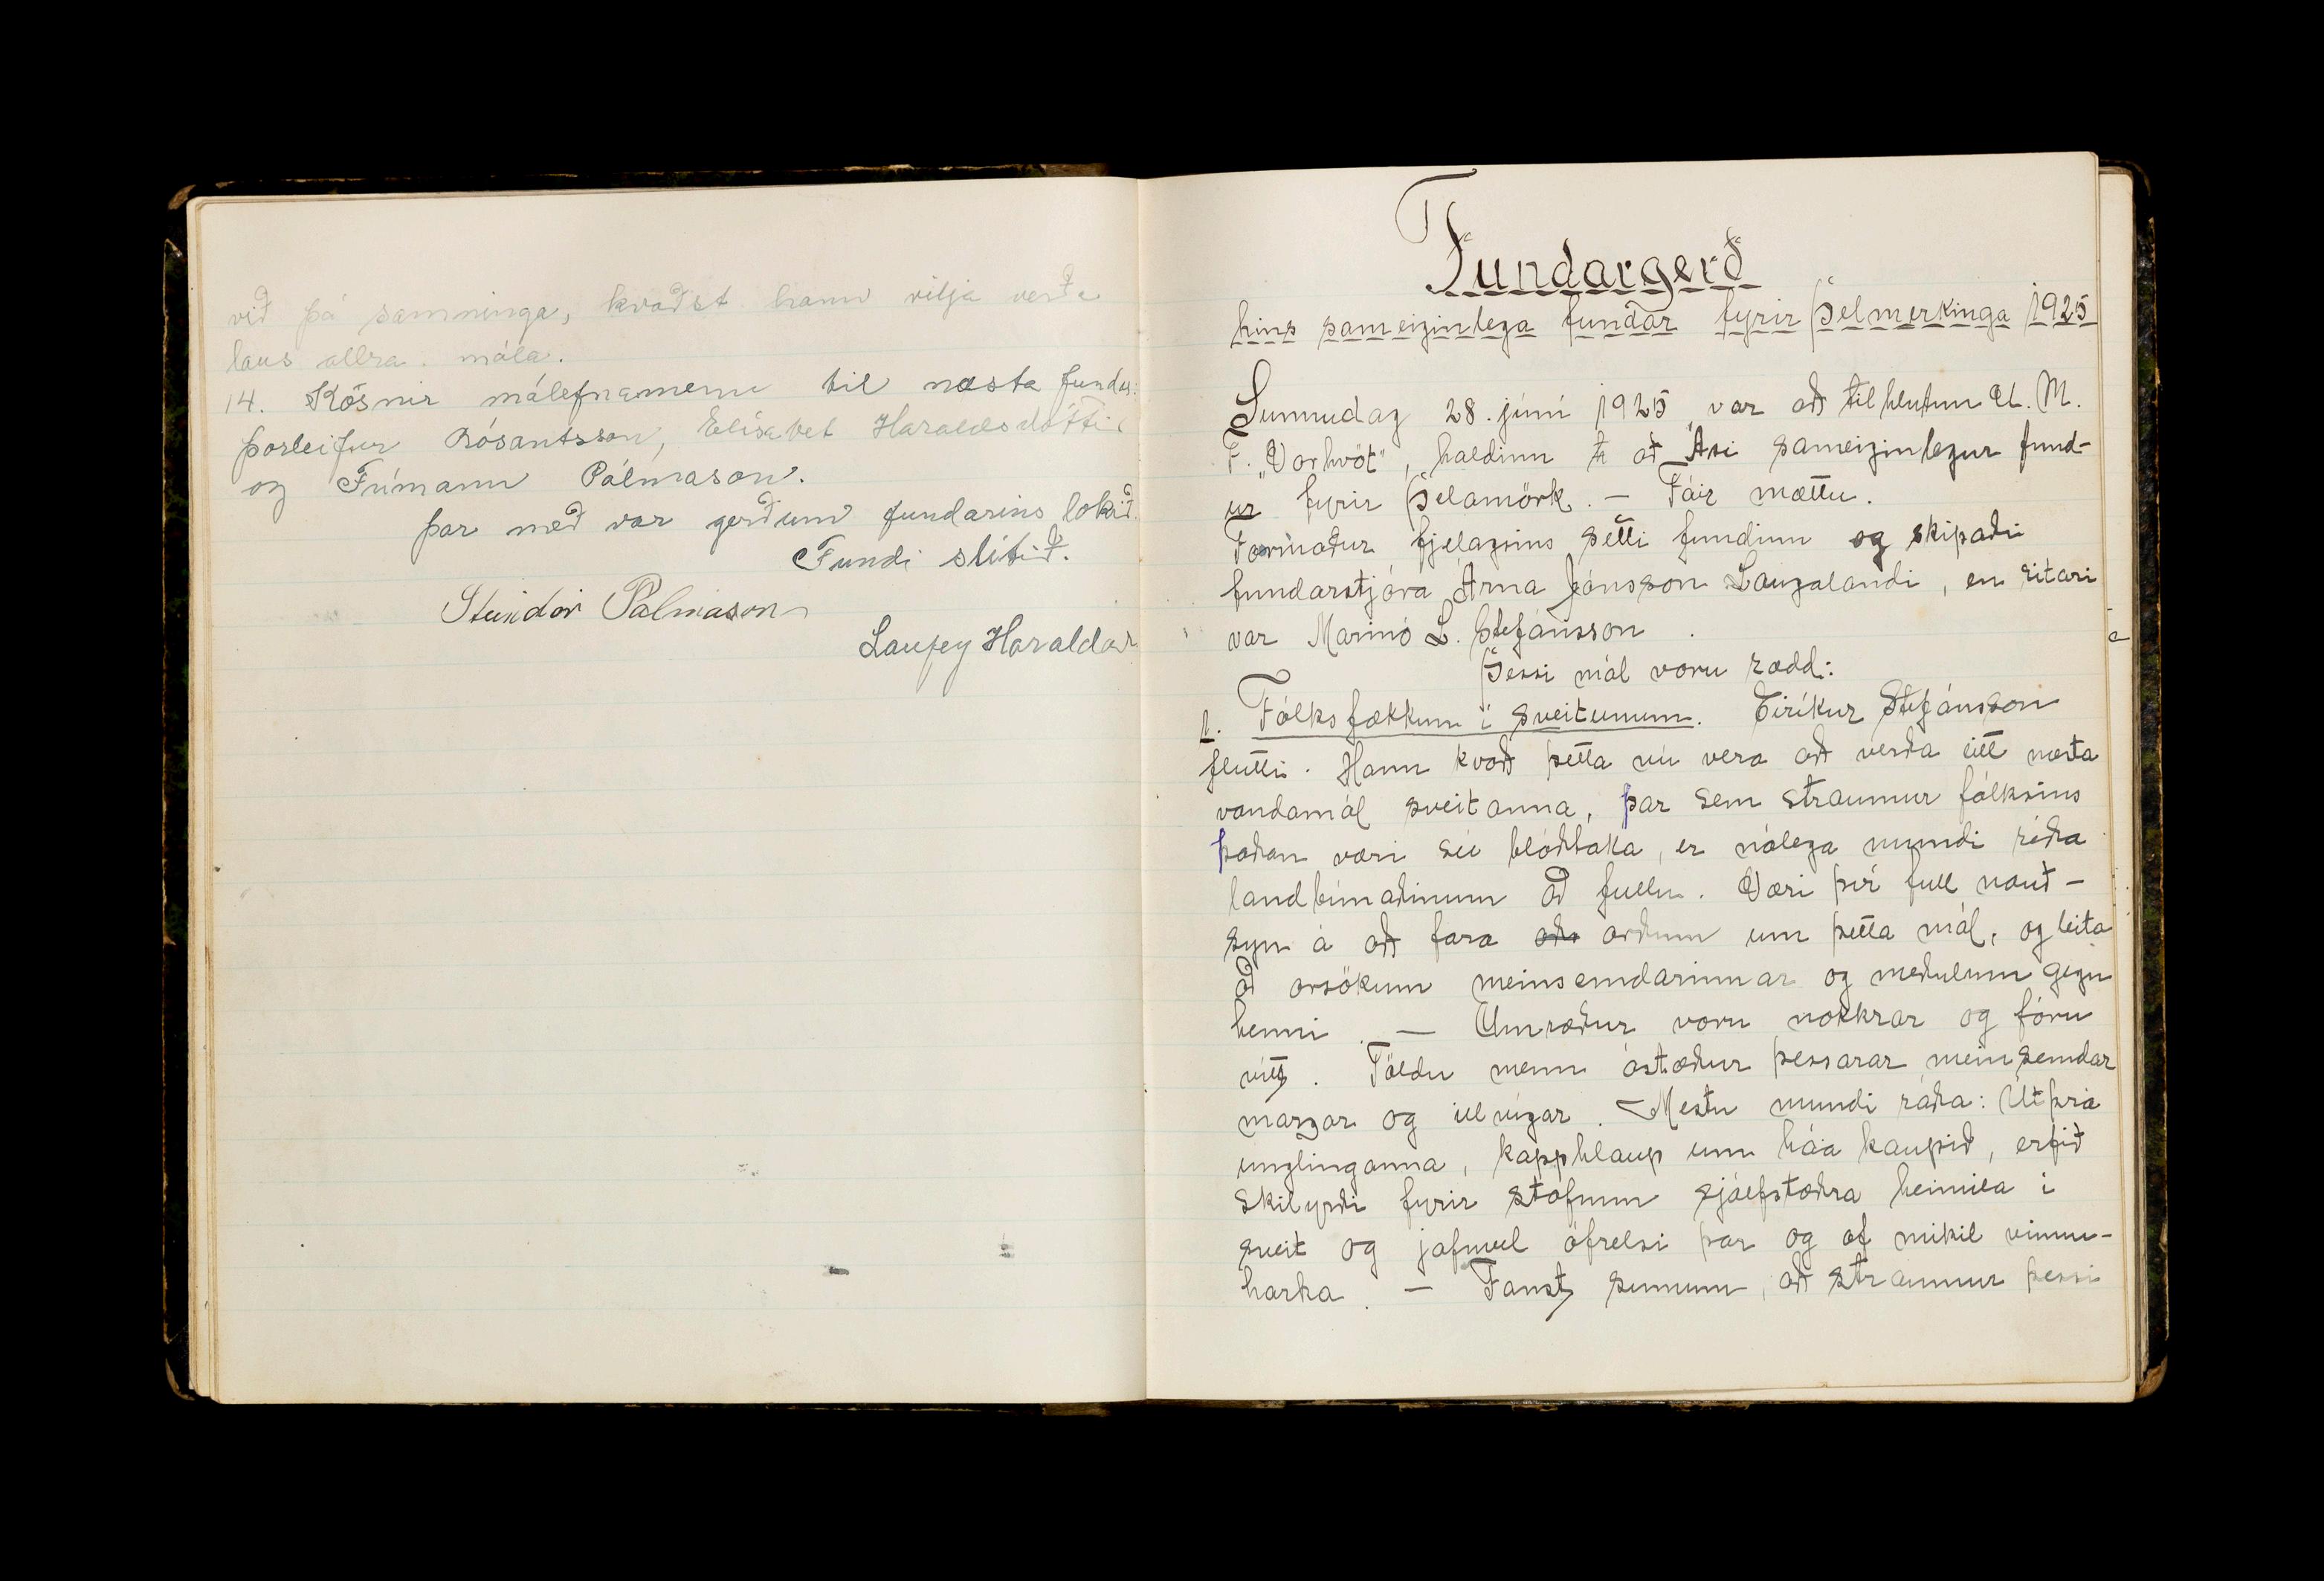 við þá samninga, kvaðst hann vilja verða
laus allra mála.
14. Kosnir málefnamenn til næsta fundar:
Þorleifur Rósantsson, Elísabet Haraldsdóttir
og Frímann Pálmason.
Þar með var gerðum fundarins lokið.
Fundi slitið.
Steindór Pálmason
Laufey Haraldsd
Fundargerð
hins sameiginlega fundar fyrir Þelmerkinga 1925
Sunnudag 28. júní 1925 var að tilhlutun U. M.
F. „Vorhvöt", haldinn að Ási sameiginlegur fund-
ur fyrir Þelamörk. — Fáir mættu.
Formaður fjelagsins setti fundinn og skipaði
fundarstjóra Árna Jónsson Laugalandi, en ritari
var Marinó L. Stefánsson.
Þessi mál voru rædd:
1. Fólksfækkun í sveitunum. Eiríkur Stefánsson
flutti. Hann kvað þetta nú vera að verða eitt mesta
vandamál sveitanna, þar sem straumur fólksins
þaðan væri sú blóðtaka, er nálega mundi ríða
landbúnaðinum að fullu. Væri því full nauð-
syn á að fara orðum um þetta mál, og leita
að orsökum meinsemdarinnar og meðulum gegn
henni. — Umræður voru nokkrar og fóru
vítt. Töldu menn ástæður þessarar meinsemdar
margar og illvígar. Mestu mundi ráða: Útþrá
unglinganna, kapphlaup um háa kaupið, erfið
skilyrði fyrir stofnun sjálfstæðra heimila í
sveit og jafnvel ófrelsi þar og of mikil vinnu-
harka. — Fanst sumum, að straumur þessi